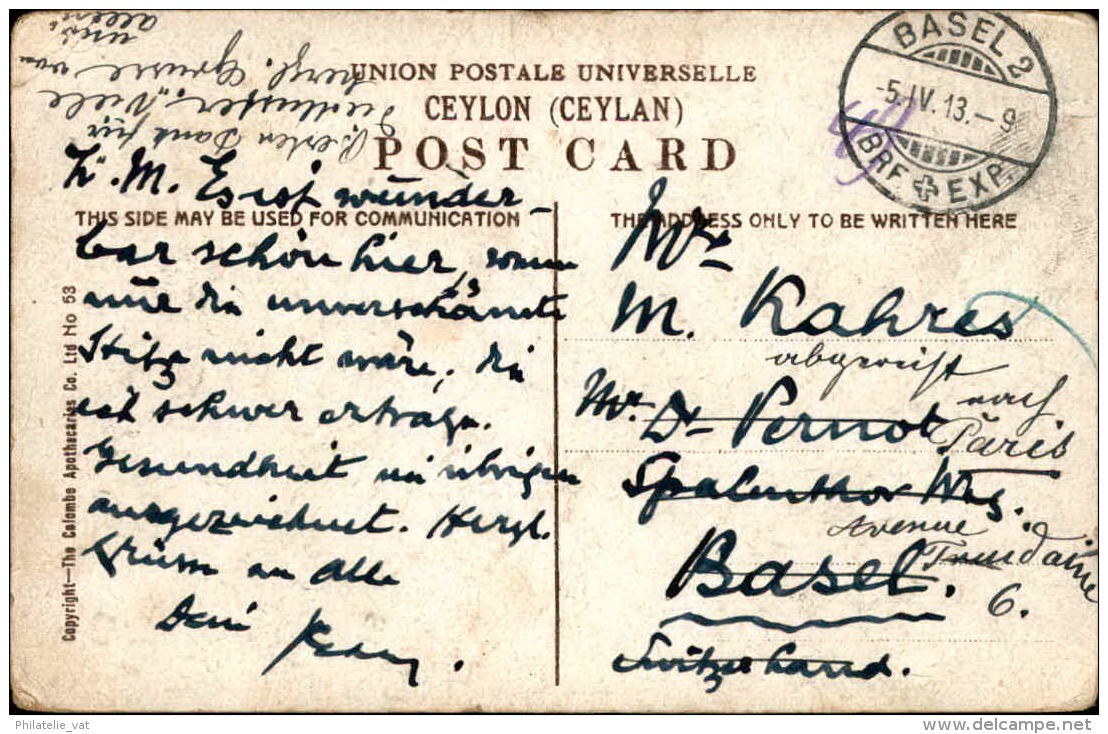 UNION POSTALE UNIVERSELLE
CEYLON (CEYLAN)
POST CARD
THIS SIDE MAY BE USED FOR COMMUNICATION
THE ADDRESS ONLY TO BE WRITTEN HERE
Copyright—The Colombo Apothecaries Co. Ltd No 53
BASEL 2
-5.IV.13.-9
BRF EXP.
Besten Dank für
Viele
herzl. Grüsse von
uns
allen
L. M. Es ist wunder-
bar schön hier, wenn
nur die unverschämte
Hitze nicht wäre, die
ich schwer ertrage.
Gesundheit im übrigen
ausgezeichnet. Herzl.
Grüsse an Alle
Dein
M. Kahres
abgereist
nach
Paris
Dr Pernot
Spalenthor Weg.
Avenue
Trudaine
6.
Basel.
Switzerland.
Philatelie_vat
www.delcampe.net